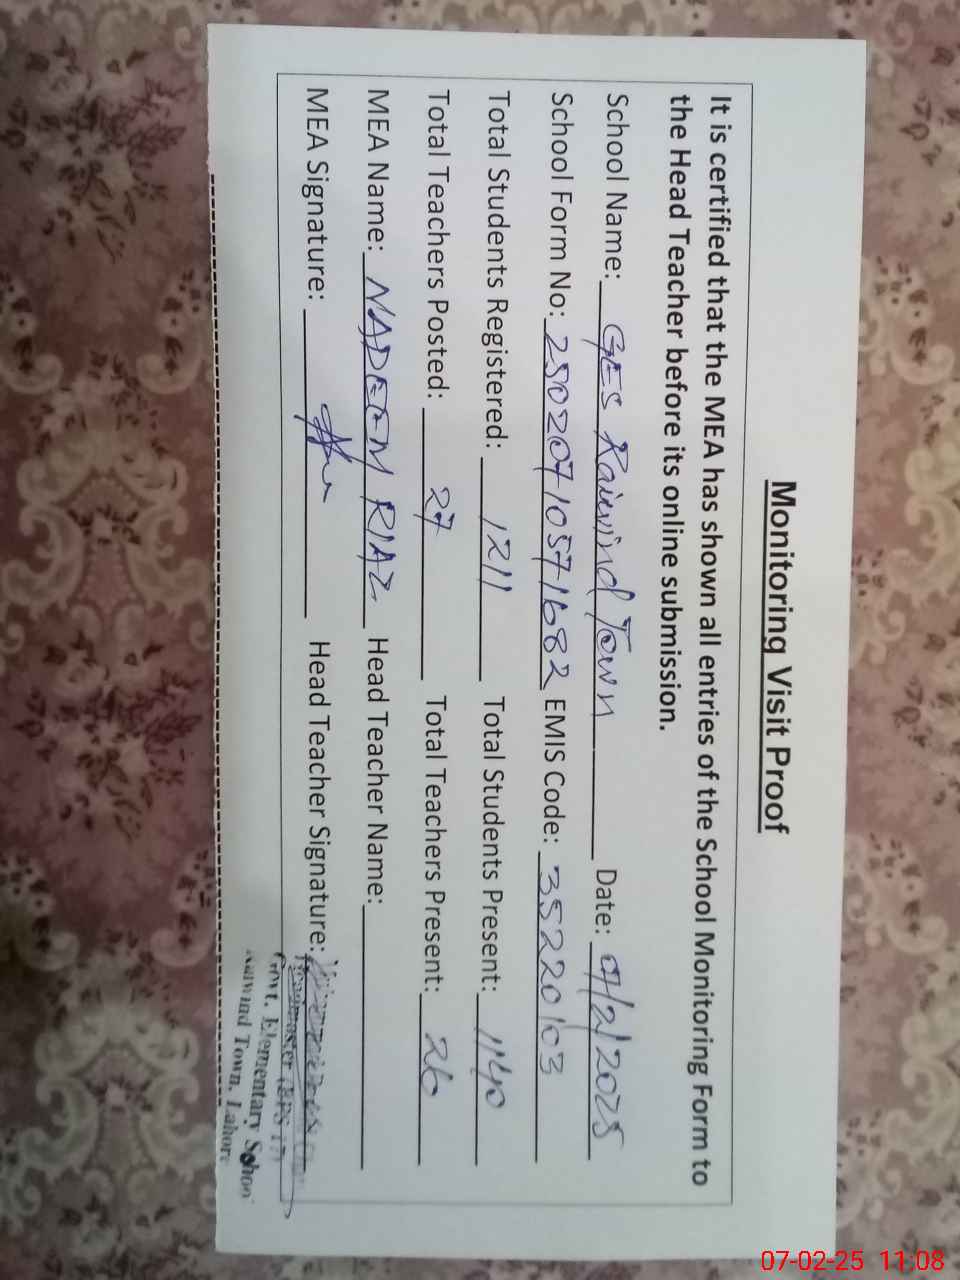 Monitoring Visit Proof
It is certified that the MEA has shown all entries of the School Monitoring Form to
the Head Teacher before its online submission.
School Name: GES Raiwind Town Date: 7/2/2025
School Form No: 25020710571682 EMIS Code: 35220103
Total Students Registered: 1211 Total Students Present: 1140
Total Teachers Posted: 27 Total Teachers Present: 26
MEA Name: NADEEM RIAZ Head Teacher Name:
MEA Signature: Head Teacher Signature:
Headmaster (BPS 17)
Govt. Elementary School
Raiwind Town, Lahore
07-02-25 11:08